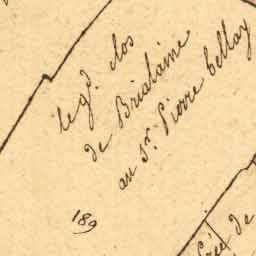 le gd. clos
de Brialaine
au Sr. Pierre Cellay
189
de